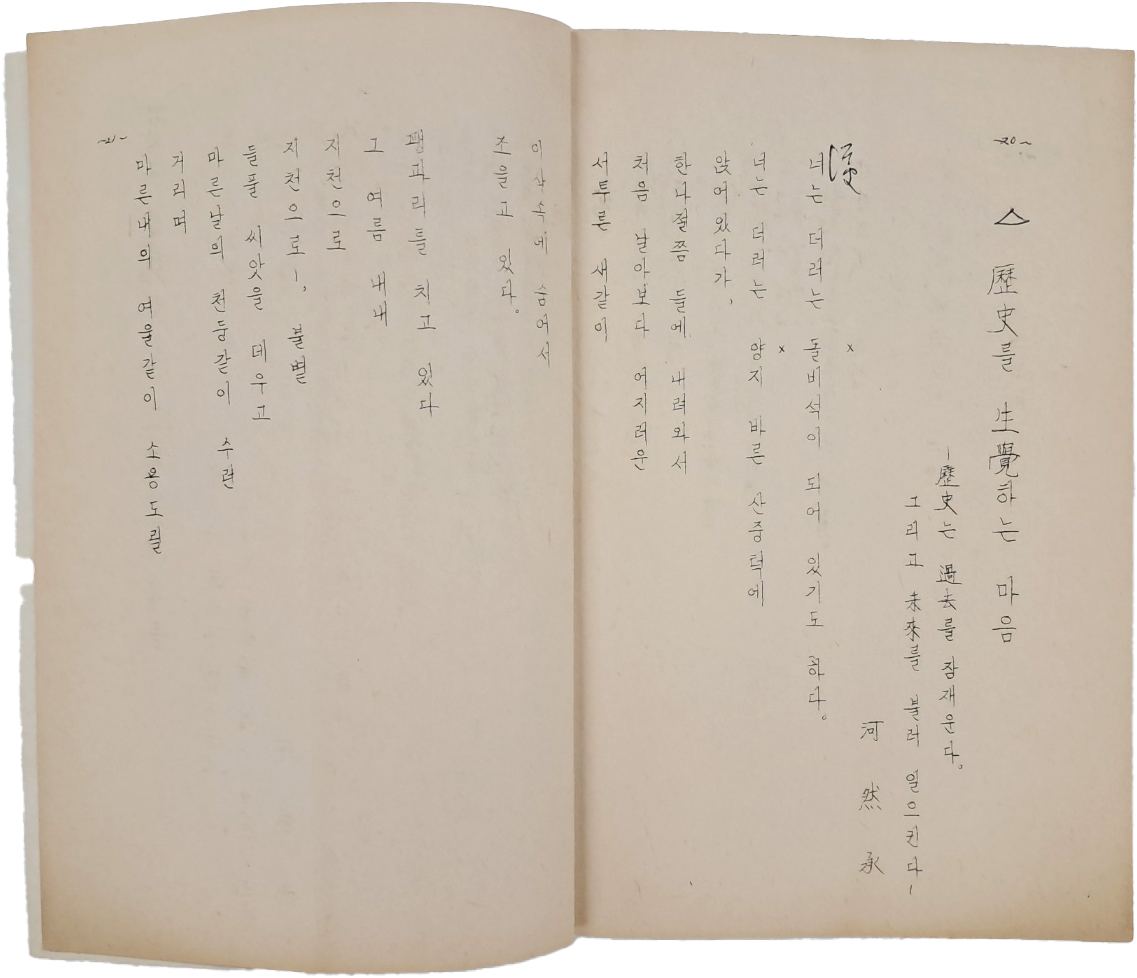 -20-
△ 歷史를 生覺하는 마음
-歷史는 過去를 잠재운다。
그리고 未來를 불러 일으킨다-
河然承
너는 더러는 돌비석이 되어 있기도 하다。
너는 더러는 양지 바른 산중턱에
앉어있다가,
한나절쯤 들에 나려와서
처음 날아보다 어지러운
서투른 새같이
이삭속에 숨어서
조을고 있다。
팽과리를 치고 있다
그 여름 내내
지천으로
지천으로-, 불별
들풀 씨앗을 데우고
마른날의 천둥같이 수런
거리며
마른내의 여울같이 소용도릴
-21-